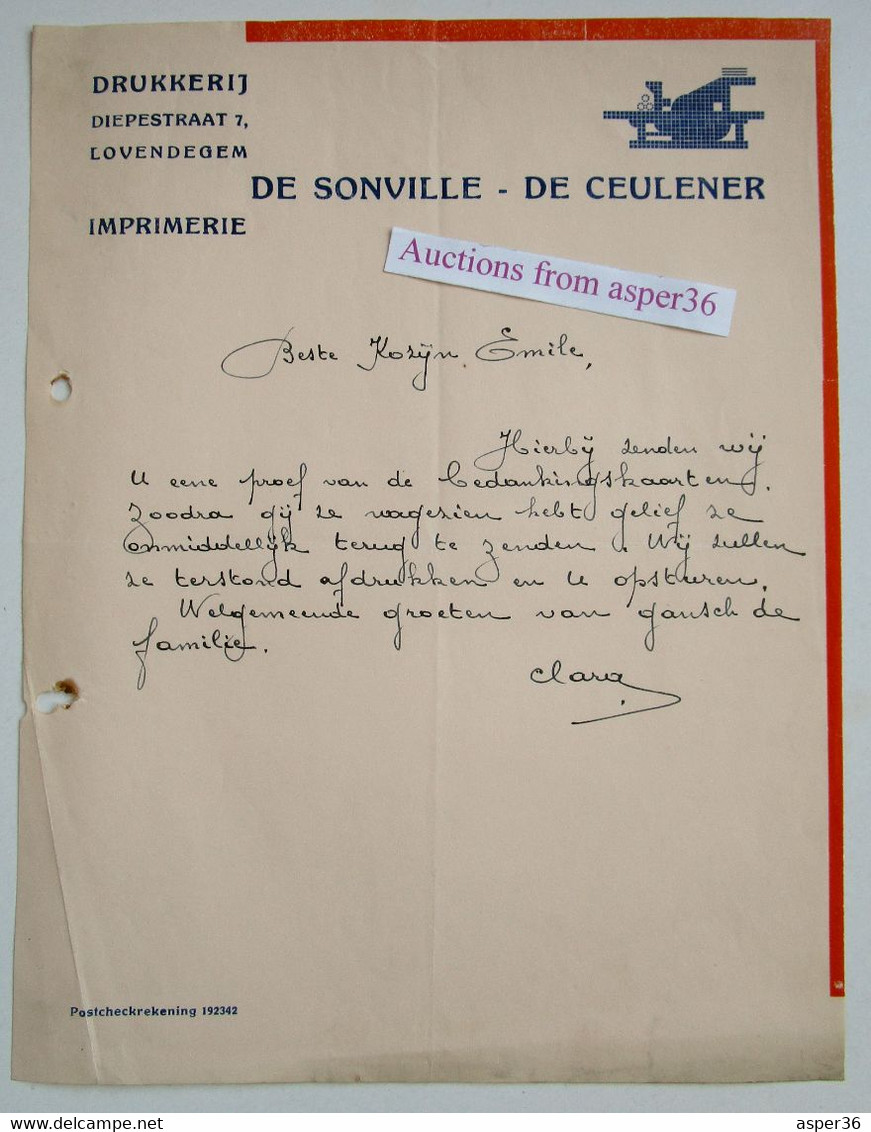 DRUKKERIJ
DIEPESTRAAT 7,
LOVENDEGEM
DE SONVILLE - DE CEULENER
IMPRIMERIE
Auctions from asper36
Beste Kozijn Emile,
Hierbij zenden wij
U eene proef van de bedankingskaarten.
Zoodra gij ze nagezien hebt gelief ze
onmiddellijk terug te zenden. Wij zullen
ze terstond afdrukken en U opsturen.
Welgemeende groeten van gansch de
familie.
Clara
Postcheckrekening 192342
asper36